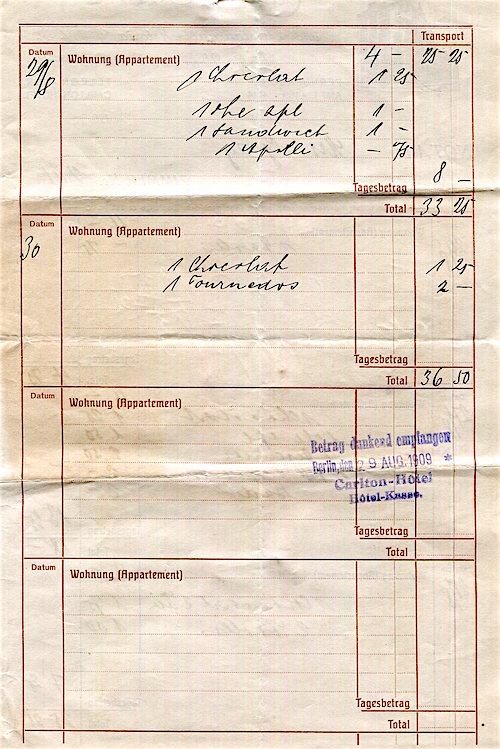 Transport
Datum
29/8
Wohnung (Appartement) 4 – 25 25
1 Chocolat 1 25
1 the cpl 1 –
1 Sandwich 1 –
1 Apolli – 75
Tagesbetrag 8 –
Total 33 25
Datum
30
Wohnung (Appartement)
1 Chocolat 1 25
1 Tournedos 2 –
Tagesbetrag
Total 36 50
Datum
Wohnung (Appartement)
Betrag dankend empfangen
Berlin, den 29 AUG. 1909 *
Carlton-Hôtel
Hôtel-Kasse.
Tagesbetrag
Total
Datum
Wohnung (Appartement)
Tagesbetrag
Total